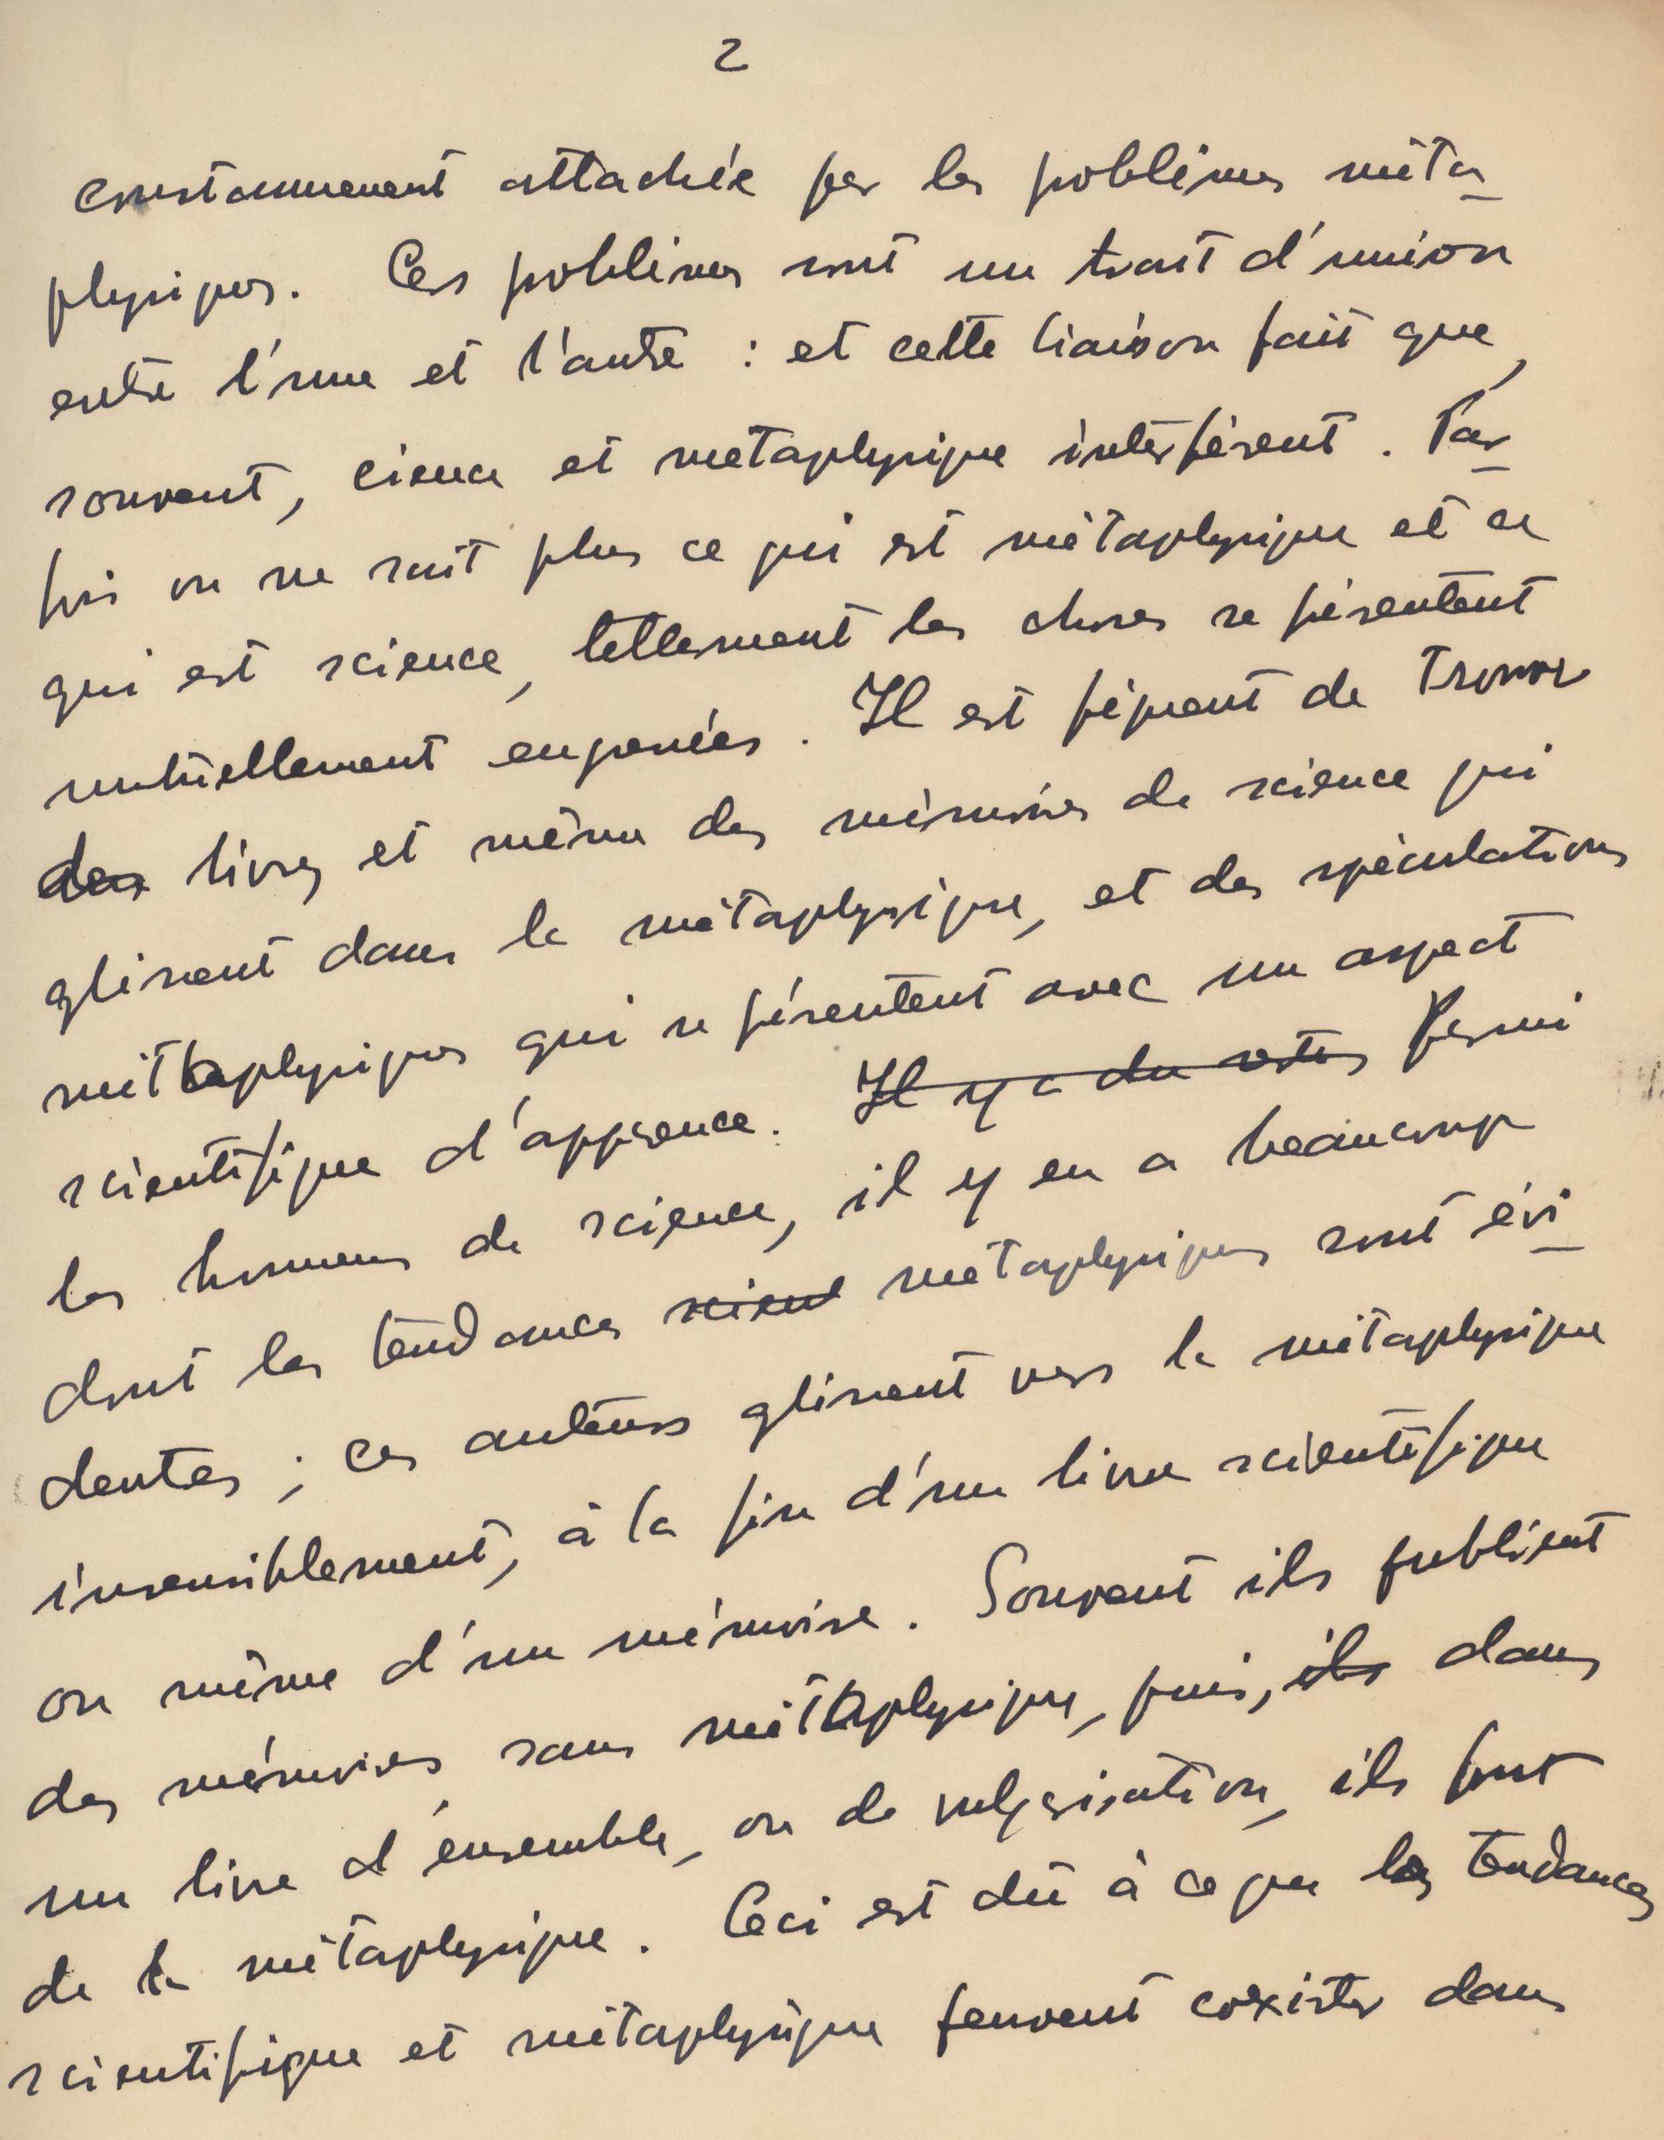 2
constamment attachée par les problèmes méta-
physiques. Ces problèmes sont un trait d'union
entre l'une et l'autre : et cette liaison fait que,
souvent, cience et métaphysique interfèrent. Par-
fois on ne sait plus ce qui est métaphysique et ce
qui est science, tellement les choses se présentent
mutuellement engrenées. Il est fréquent de trouver
des livres et même des mémoires de science qui
glissent dans la métaphysique, et des spéculations
métaphysiques qui se présentent avec un aspect
scientifique d'apparence. Il y a du reste Parmi
les hommes de science, il y en a beaucoup
dont les tendances scient métaphysiques sont évi-
dentes ; ces auteurs glissent vers la métaphysique
insensiblement, à la fin d'un livre scientifique
ou même d'un mémoire. Souvent ils publient
des mémoires sans métaphysique, puis, ils dans
un livre d'ensemble, ou de vulgarisation, ils font
de la métaphysique. Ceci est dû à ce que les tendances
scientifique et métaphysique peuvent coexister dans